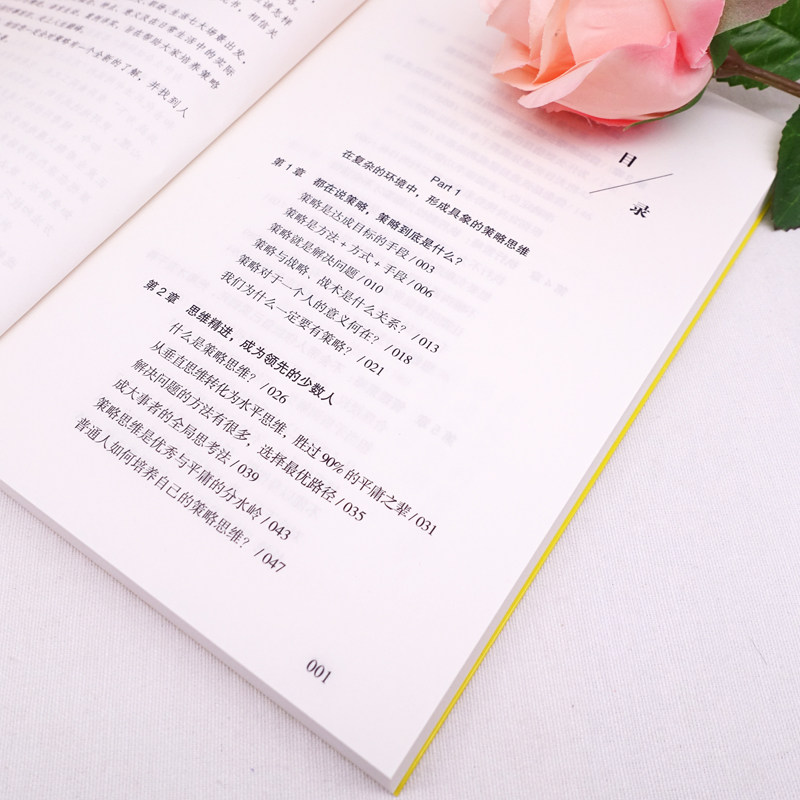 目
录
Part 1
在复杂的环境中，形成具象的策略思维
第 1 章 都在说策略，策略到底是什么？
策略是达成目标的手段 / 003
策略是方法 + 方式 + 手段 / 006
策略就是解决问题 / 010
策略与战略、战术是什么关系？ / 013
策略对于一个人的意义何在？ / 018
我们为什么一定要有策略？ / 021
第 2 章 思维精进，成为领先的少数人
什么是策略思维？ / 026
从垂直思维转化为水平思维，胜过 90% 的平庸之辈 / 031
解决问题的方法有很多，选择最优路径 / 035
成大事者的全局思考法 / 039
策略思维是优秀与平庸的分水岭 / 043
普通人如何培养自己的策略思维？ / 047
001